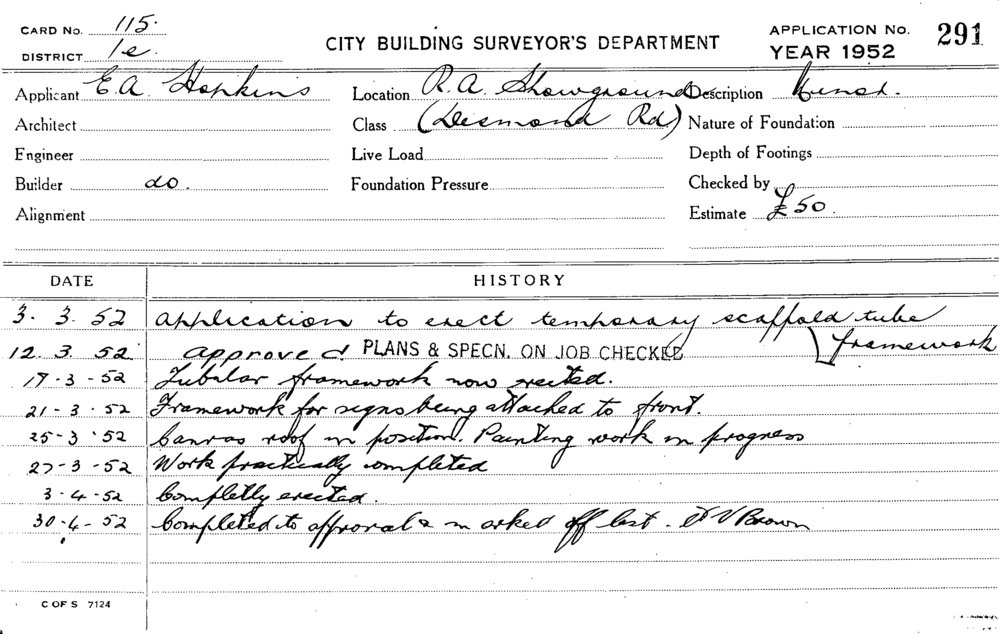 CARD No. 115.
DISTRICT 1e.
CITY BUILDING SURVEYOR'S DEPARTMENT
APPLICATION No. 291
YEAR 1952
Applicant E.A. Hopkins Location R.A. Showground Description
Architect Class (Desmond Rd) Nature of Foundation
Engineer Live Load Depth of Footings
Builder do. Foundation Pressure Checked by
Alignment Estimate £50.
DATE HISTORY
3. 3. 52 Application to erect temporary scaffold tube
framework
12. 3. 52 approved PLANS & SPECN. ON JOB CHECKED
-3-52 Tubular framework now erected.
21-3-52 Framework for signs being attached to front.
25-3-52 Canvas roof in position. Painting work in progress
27-3-52 Work practically completed
3-4-52 Completly erected.
30-4-52 Completed to approval & marked off list. Brown
C OF S 7124